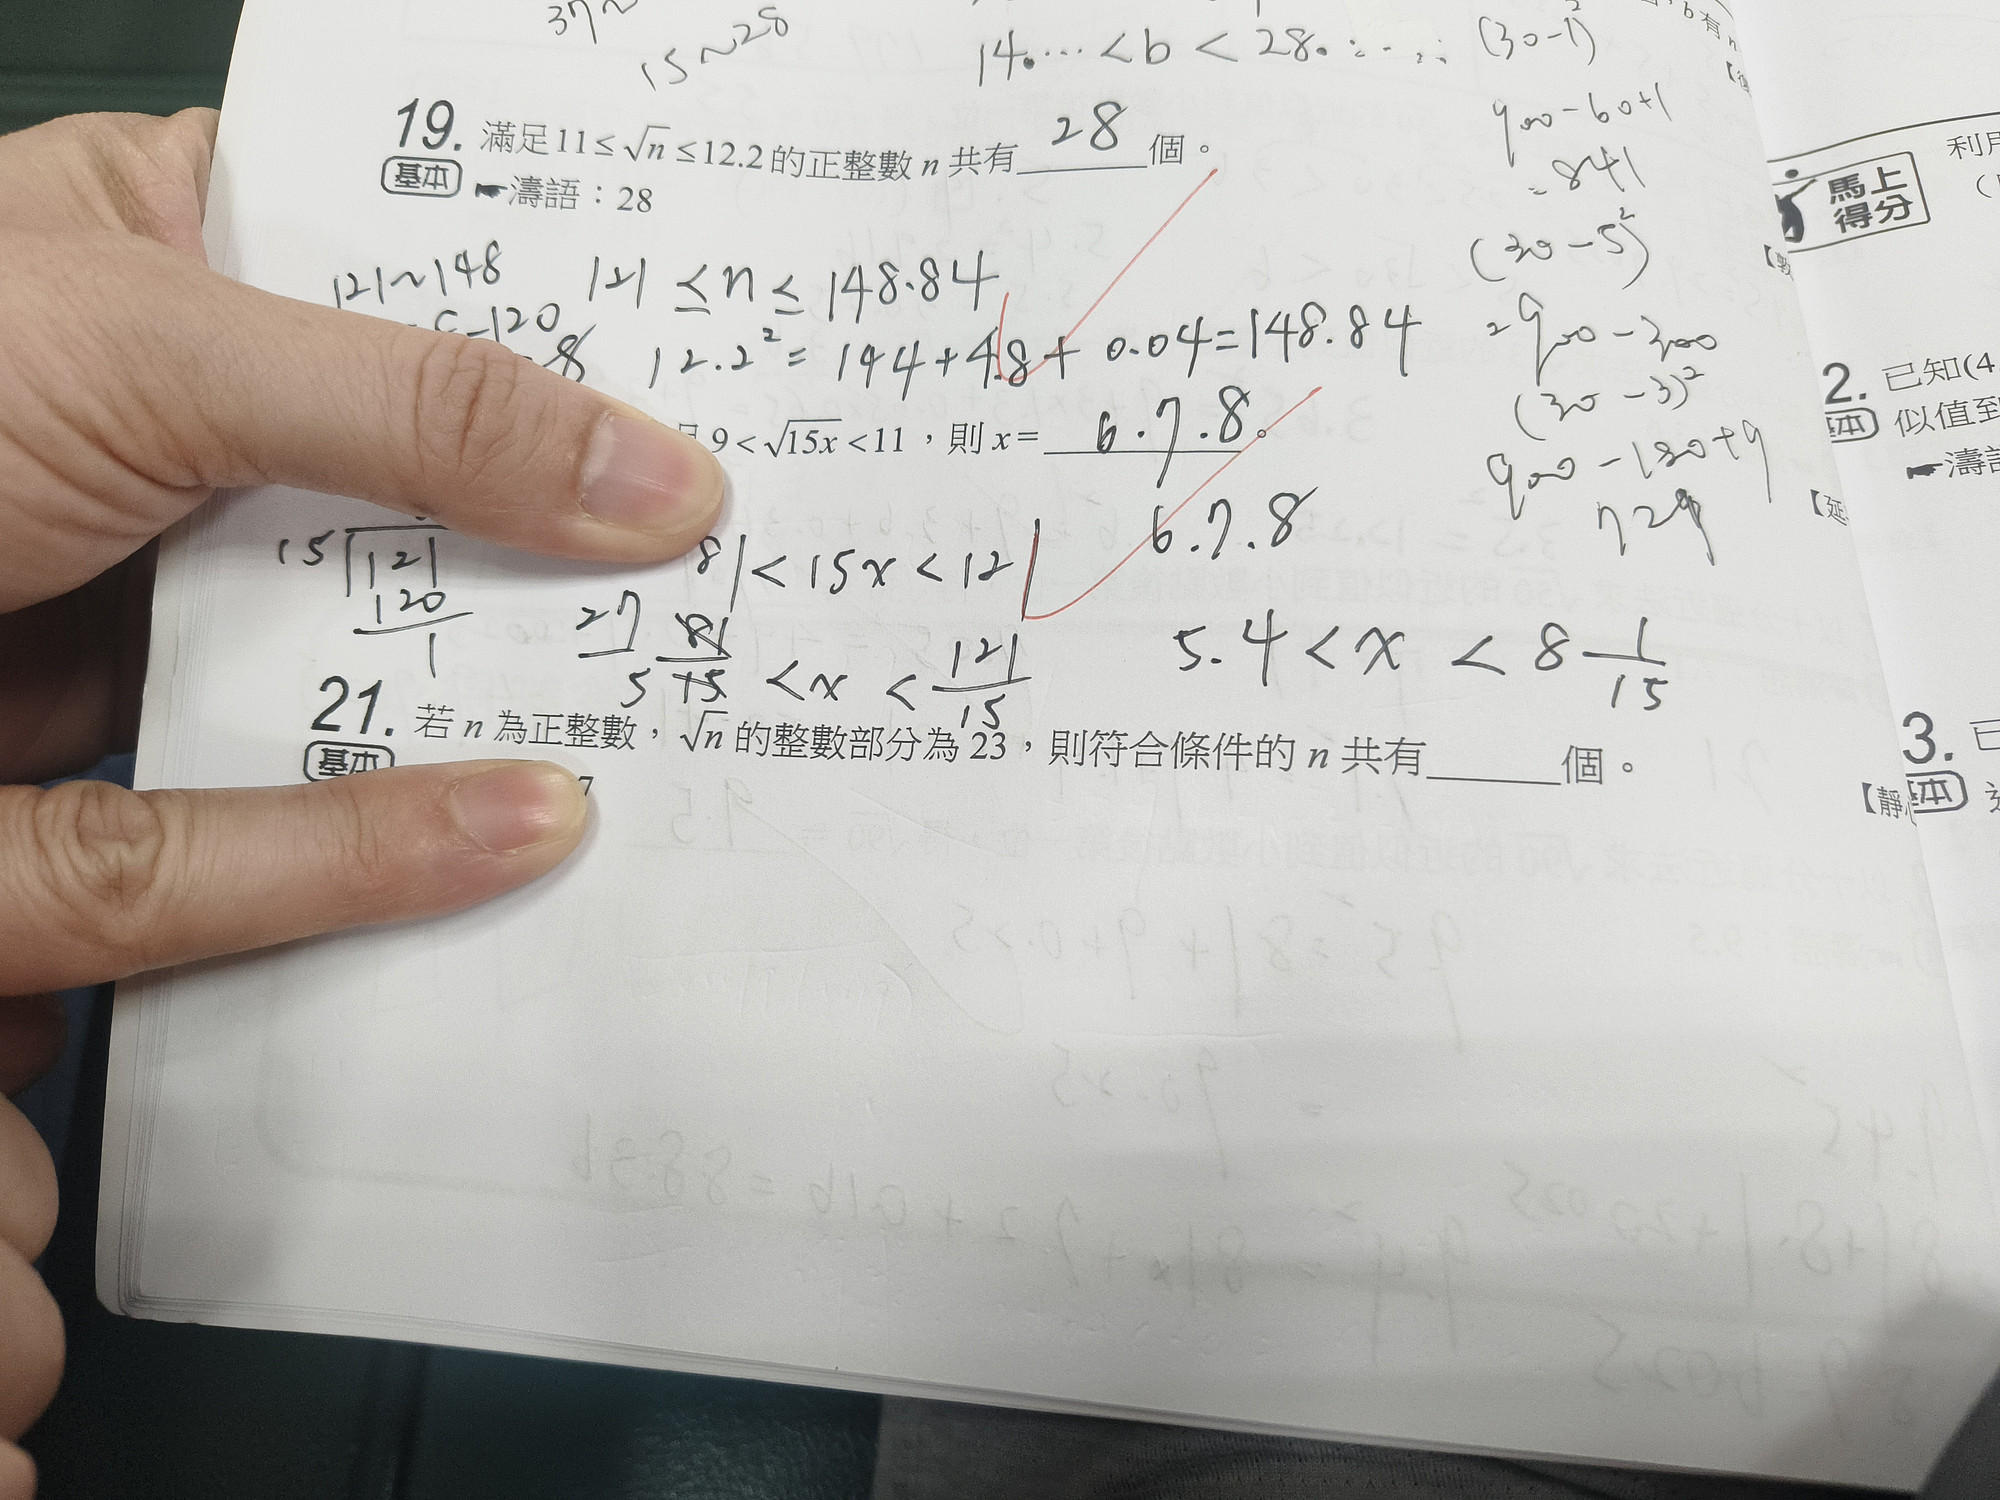 37~
15~28
14.… < b < 28.…
(30-1)²
900-60+1
=841
19. 滿足 11≤√n≤12.2 的正整數 n 共有 28 個。
基本 濤語：28
121~148
121 ≤ n ≤ 148.84
-120
8
12.2² = 144+4.8+0.04=148.84
(30-5)²
=900-300
(30-3)²
900-180+9
729
9<√15x<11，則 x= 6.7.8。
6.7.8
15 121
120
1
81 < 15x < 121
27
5
81
15
< x <
121
15
5.4 < x < 8 1/15
21. 若 n 為正整數，√n 的整數部分為 23，則符合條件的 n 共有______個。
基本
7
馬上得分
利用
2. 已知(4
基本 似值到
濤語
【延
3. 已
基本
【靜